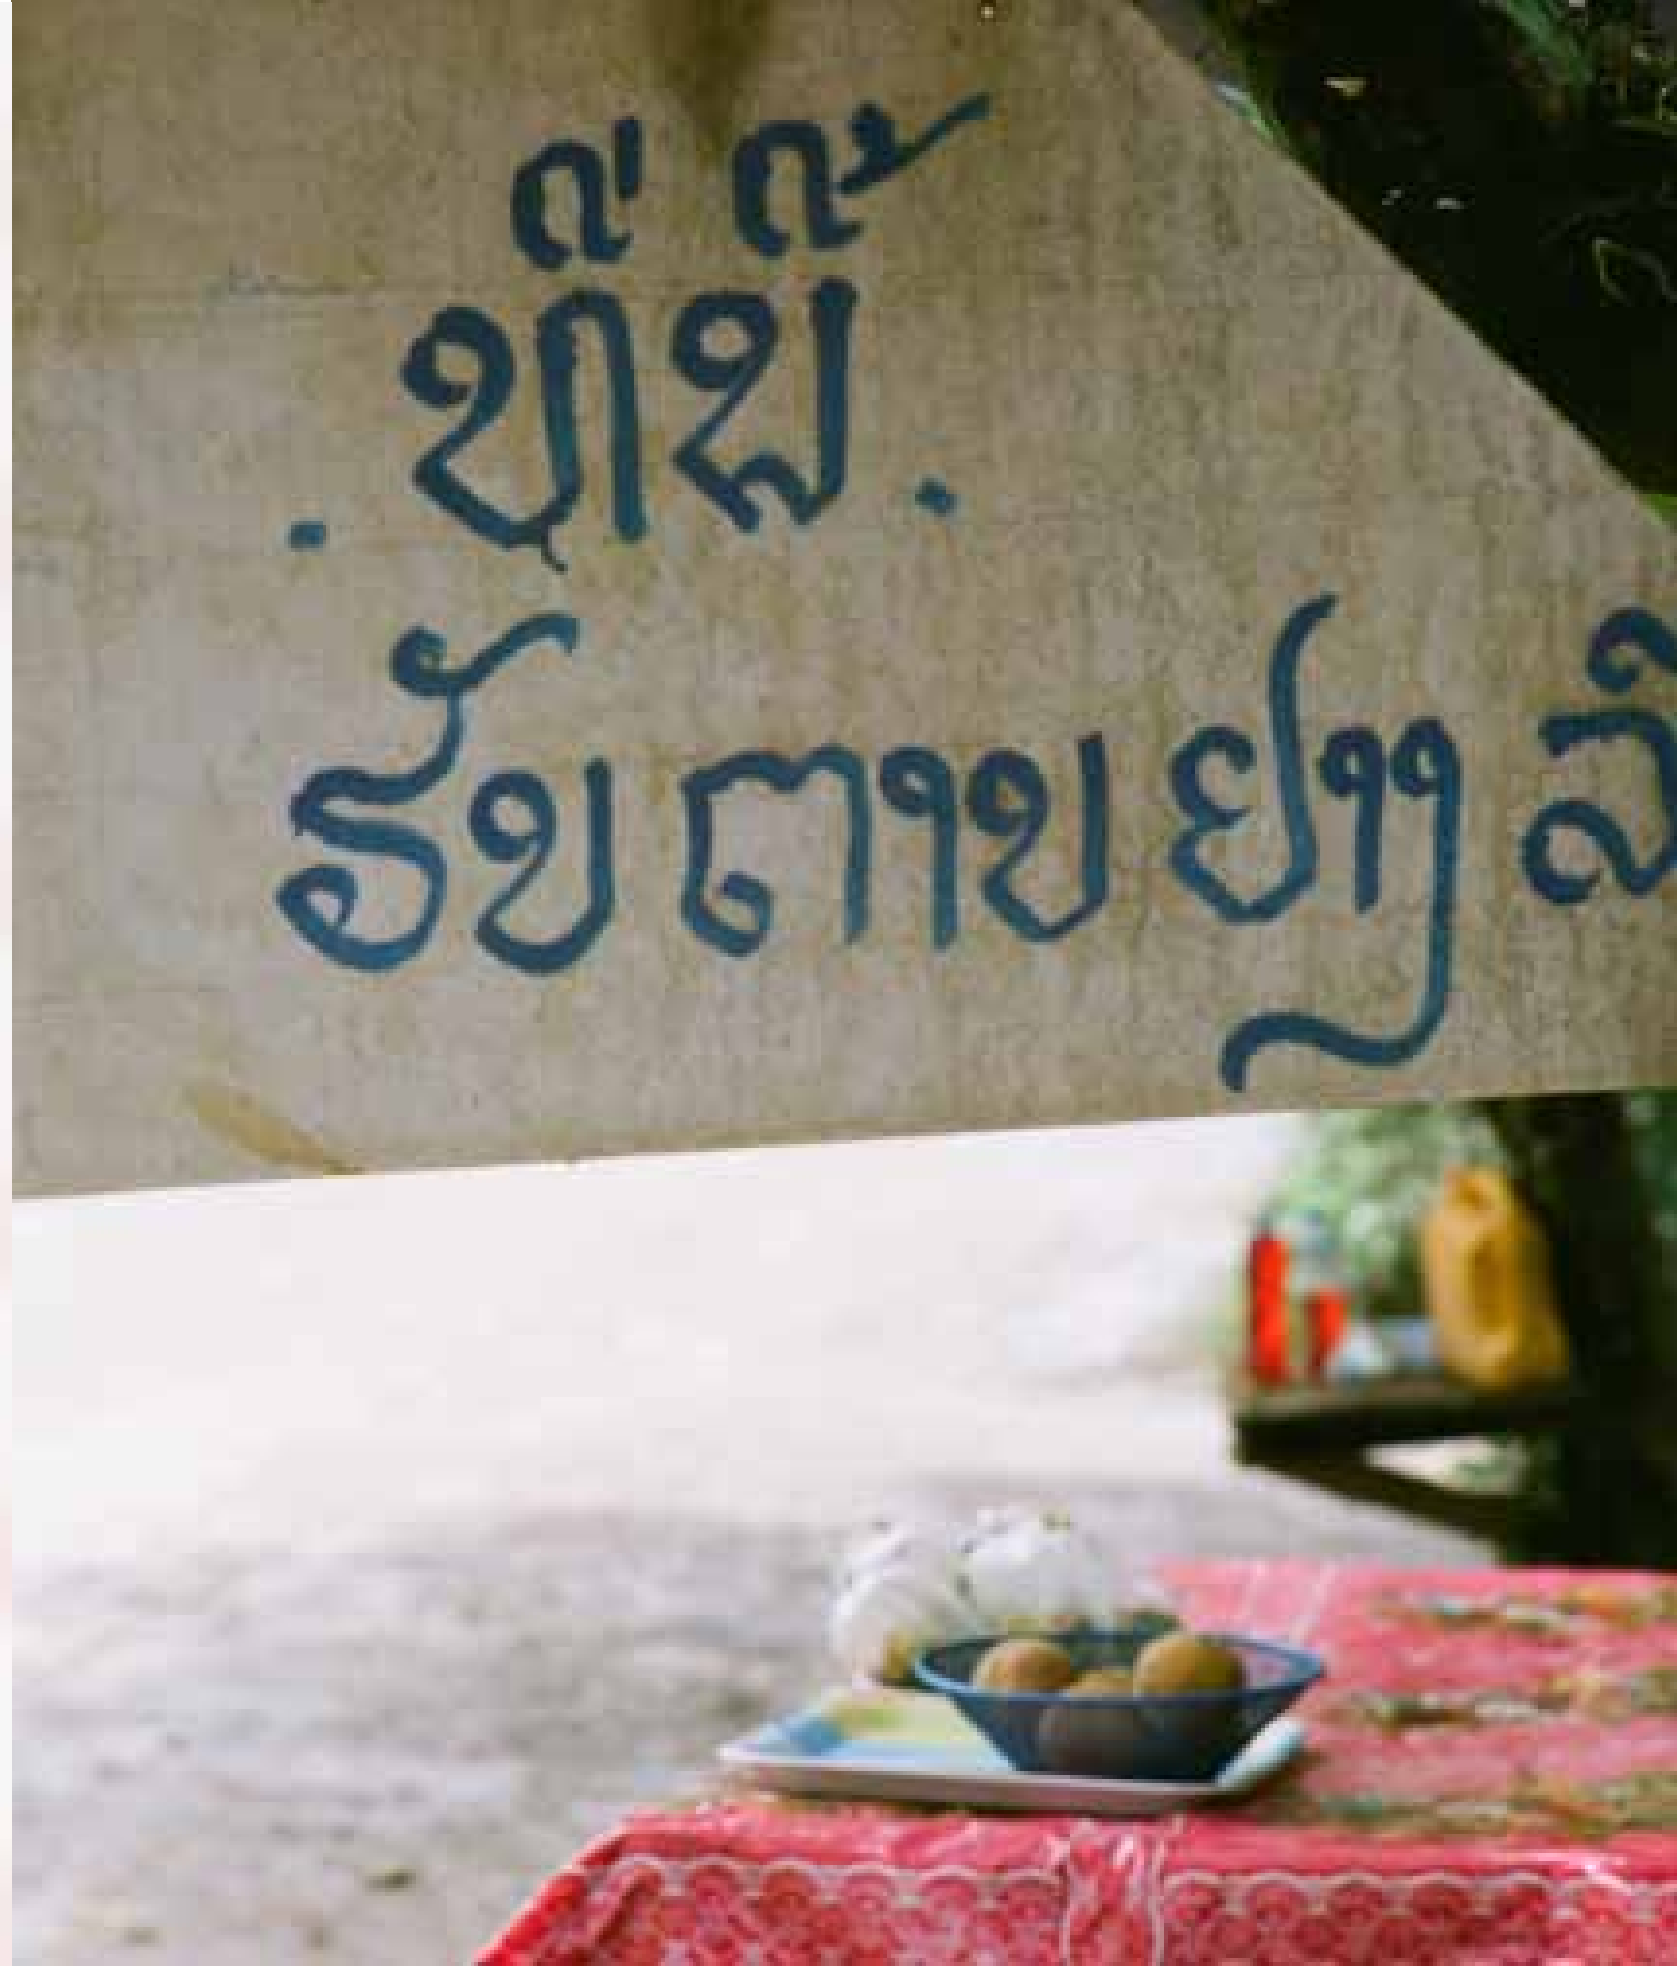 . ທີ່ນີ້ .
ຮັບ ຕາບ ຢາງ